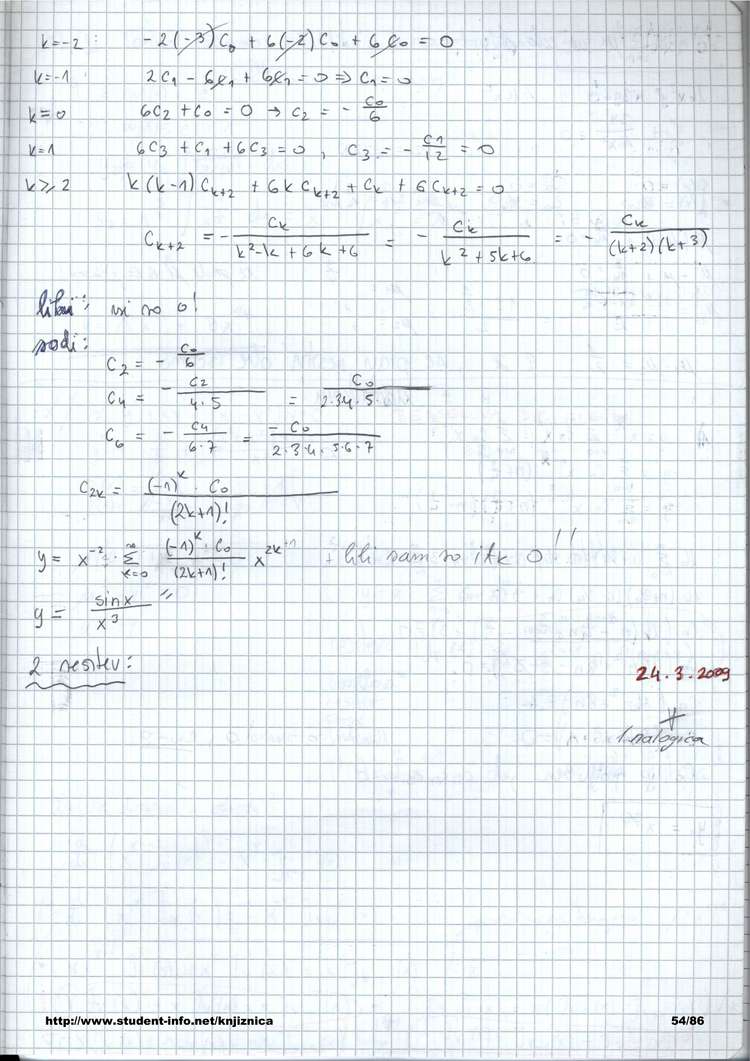 k=-2 : -2(-3)C₀ + 6(-2)C₀ + 6C₀ = 0
k=-1 2C₁ - 6C₁ + 6C₁ = 0 ⇒ C₁ = 0
k=0 6C₂ + C₀ = 0 → C₂ = - C₀/6
k=1 6C₃ + C₁ + 6C₃ = 0 , C₃ = - C₁/12 = 0
k≥2 k(k-1)C_{k+2} + 6k C_{k+2} + C_k + 6C_{k+2} = 0
C_{k+2} = - C_k/(k²-k+6k+6) = - C_k/(k²+5k+6) = - C_k/((k+2)(k+3))
lihi: vsi so 0!
sodi:
C₂ = - C₀/6
C₄ = - C₂/(4·5) = C₀/(2·3·4·5)
C₆ = - C₄/(6·7) = - C₀/(2·3·4·5·6·7)
C_{2k} = (-1)^k · C₀/(2k+1)!
y = x⁻² · ∑_{k=0}^∞ (-1)^k · C₀/(2k+1)! x^{2k+1} + lihi sam so itk 0!!
y = sin x/x³
2 rešitev:
24.3.2009
+
1.nalogica
http://www.student-info.net/knjiznica 54/86